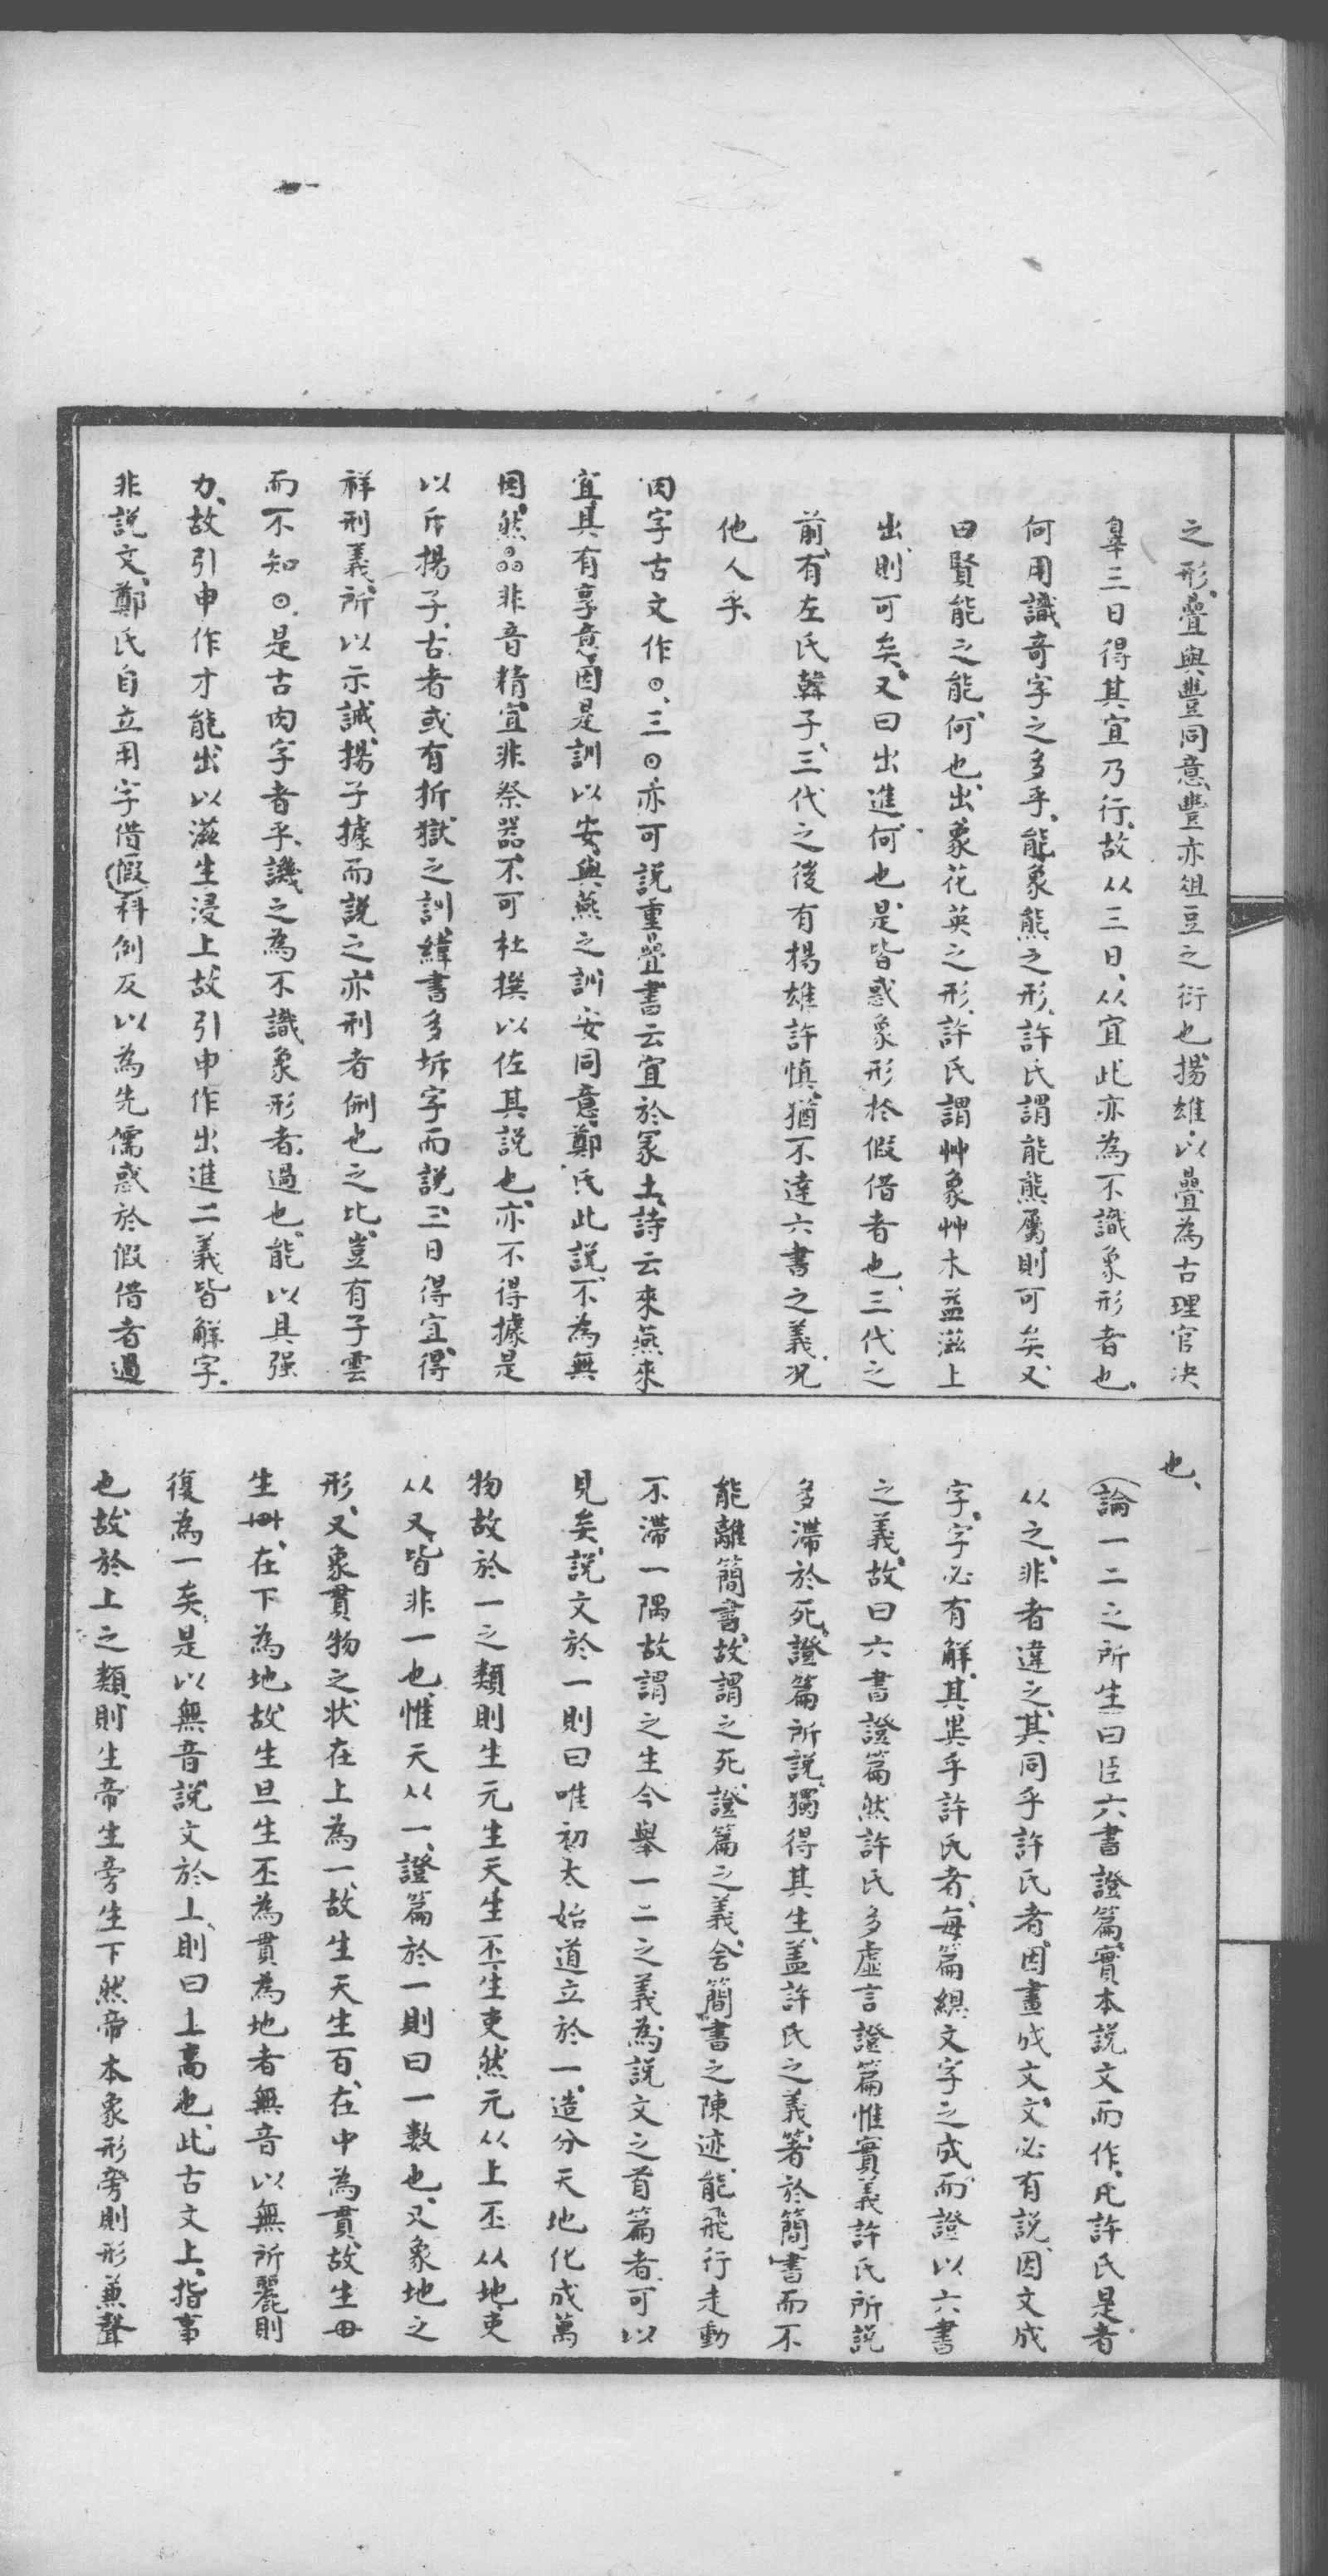 之形、疊與豐同意、豐亦俎豆之衍也、揚雄以疊為古理官決
辠三日得其宜乃行、故从三日、从宜此亦為不識象形者也、
何用識奇字之多乎、能象熊之形、許氏謂能熊屬則可矣、又
曰賢能之能、何也、出象花英之形、許氏謂艸象艸木益滋上
出、則可矣、又曰出進、何也、是皆惑象形於假借者也、三代之
前、有左氏韓子、三代之後有揚雄許慎、猶不達六書之義、况
他人乎、
肉字古文作⊙、三⊙亦可說重疊書云宜於冢土、詩云來燕來
宜其有享意、因是訓以安、與燕之訓安同意、鄭氏此說、不為無
因、然非音精、宜非祭器、不可杜撰以佐其說也、亦不得據是
以斥揚子、古者或有折獄之訓、緯書多坼字而說、三日得宜、得
祥刑義、所以示誡、揚子據而說之、亦刑者侀也之比、豈有子雲
而不知⊙、是古肉字者乎、譏之為不識象形者、過也、能以具强
力、故引申作才能、出以滋生浸上、故引申作出進二義皆解字、
非說文、鄭氏自立用字借假科例反以為先儒惑於假借者過
也、
論一二之所生曰臣六書證篇、實本說文而作、凡許氏是者
从之、非者違之、其同乎許氏者、因畫成文、文必有說、因文成
字、字必有解、其異乎許氏者、每篇緫文字之成、而證以六書
之義、故曰六書證篇、然許氏多虛言證篇惟實義許氏所說
多滯於死、證篇所說、獨得其生、蓋許氏之義、著於簡書而不
能離簡書、故謂之死、證篇之義、舍簡書之陳迹、能飛行走動
不滯一隅故謂之生、今舉一二之義、為說文之首篇者、可以
見矣、說文於一則曰唯初太始道立於一、造分天地化成萬
物故於一之類則生元生天生丕生吏然元从上丕从地、吏
从又、皆非一也、惟天从一、證篇於一則曰一數也、又象地之
形、又象貫物之状、在上為一、故生天生百、在中為貫、故生毌
生毌、在下為地、故生旦生丕為貫為地者無音以無所麗則
復為一矣、是以無音說文於丄、則曰丄高也、此古文上、指事
也、故於上之類則生帝生旁生下然帝本象形旁則形兼聲